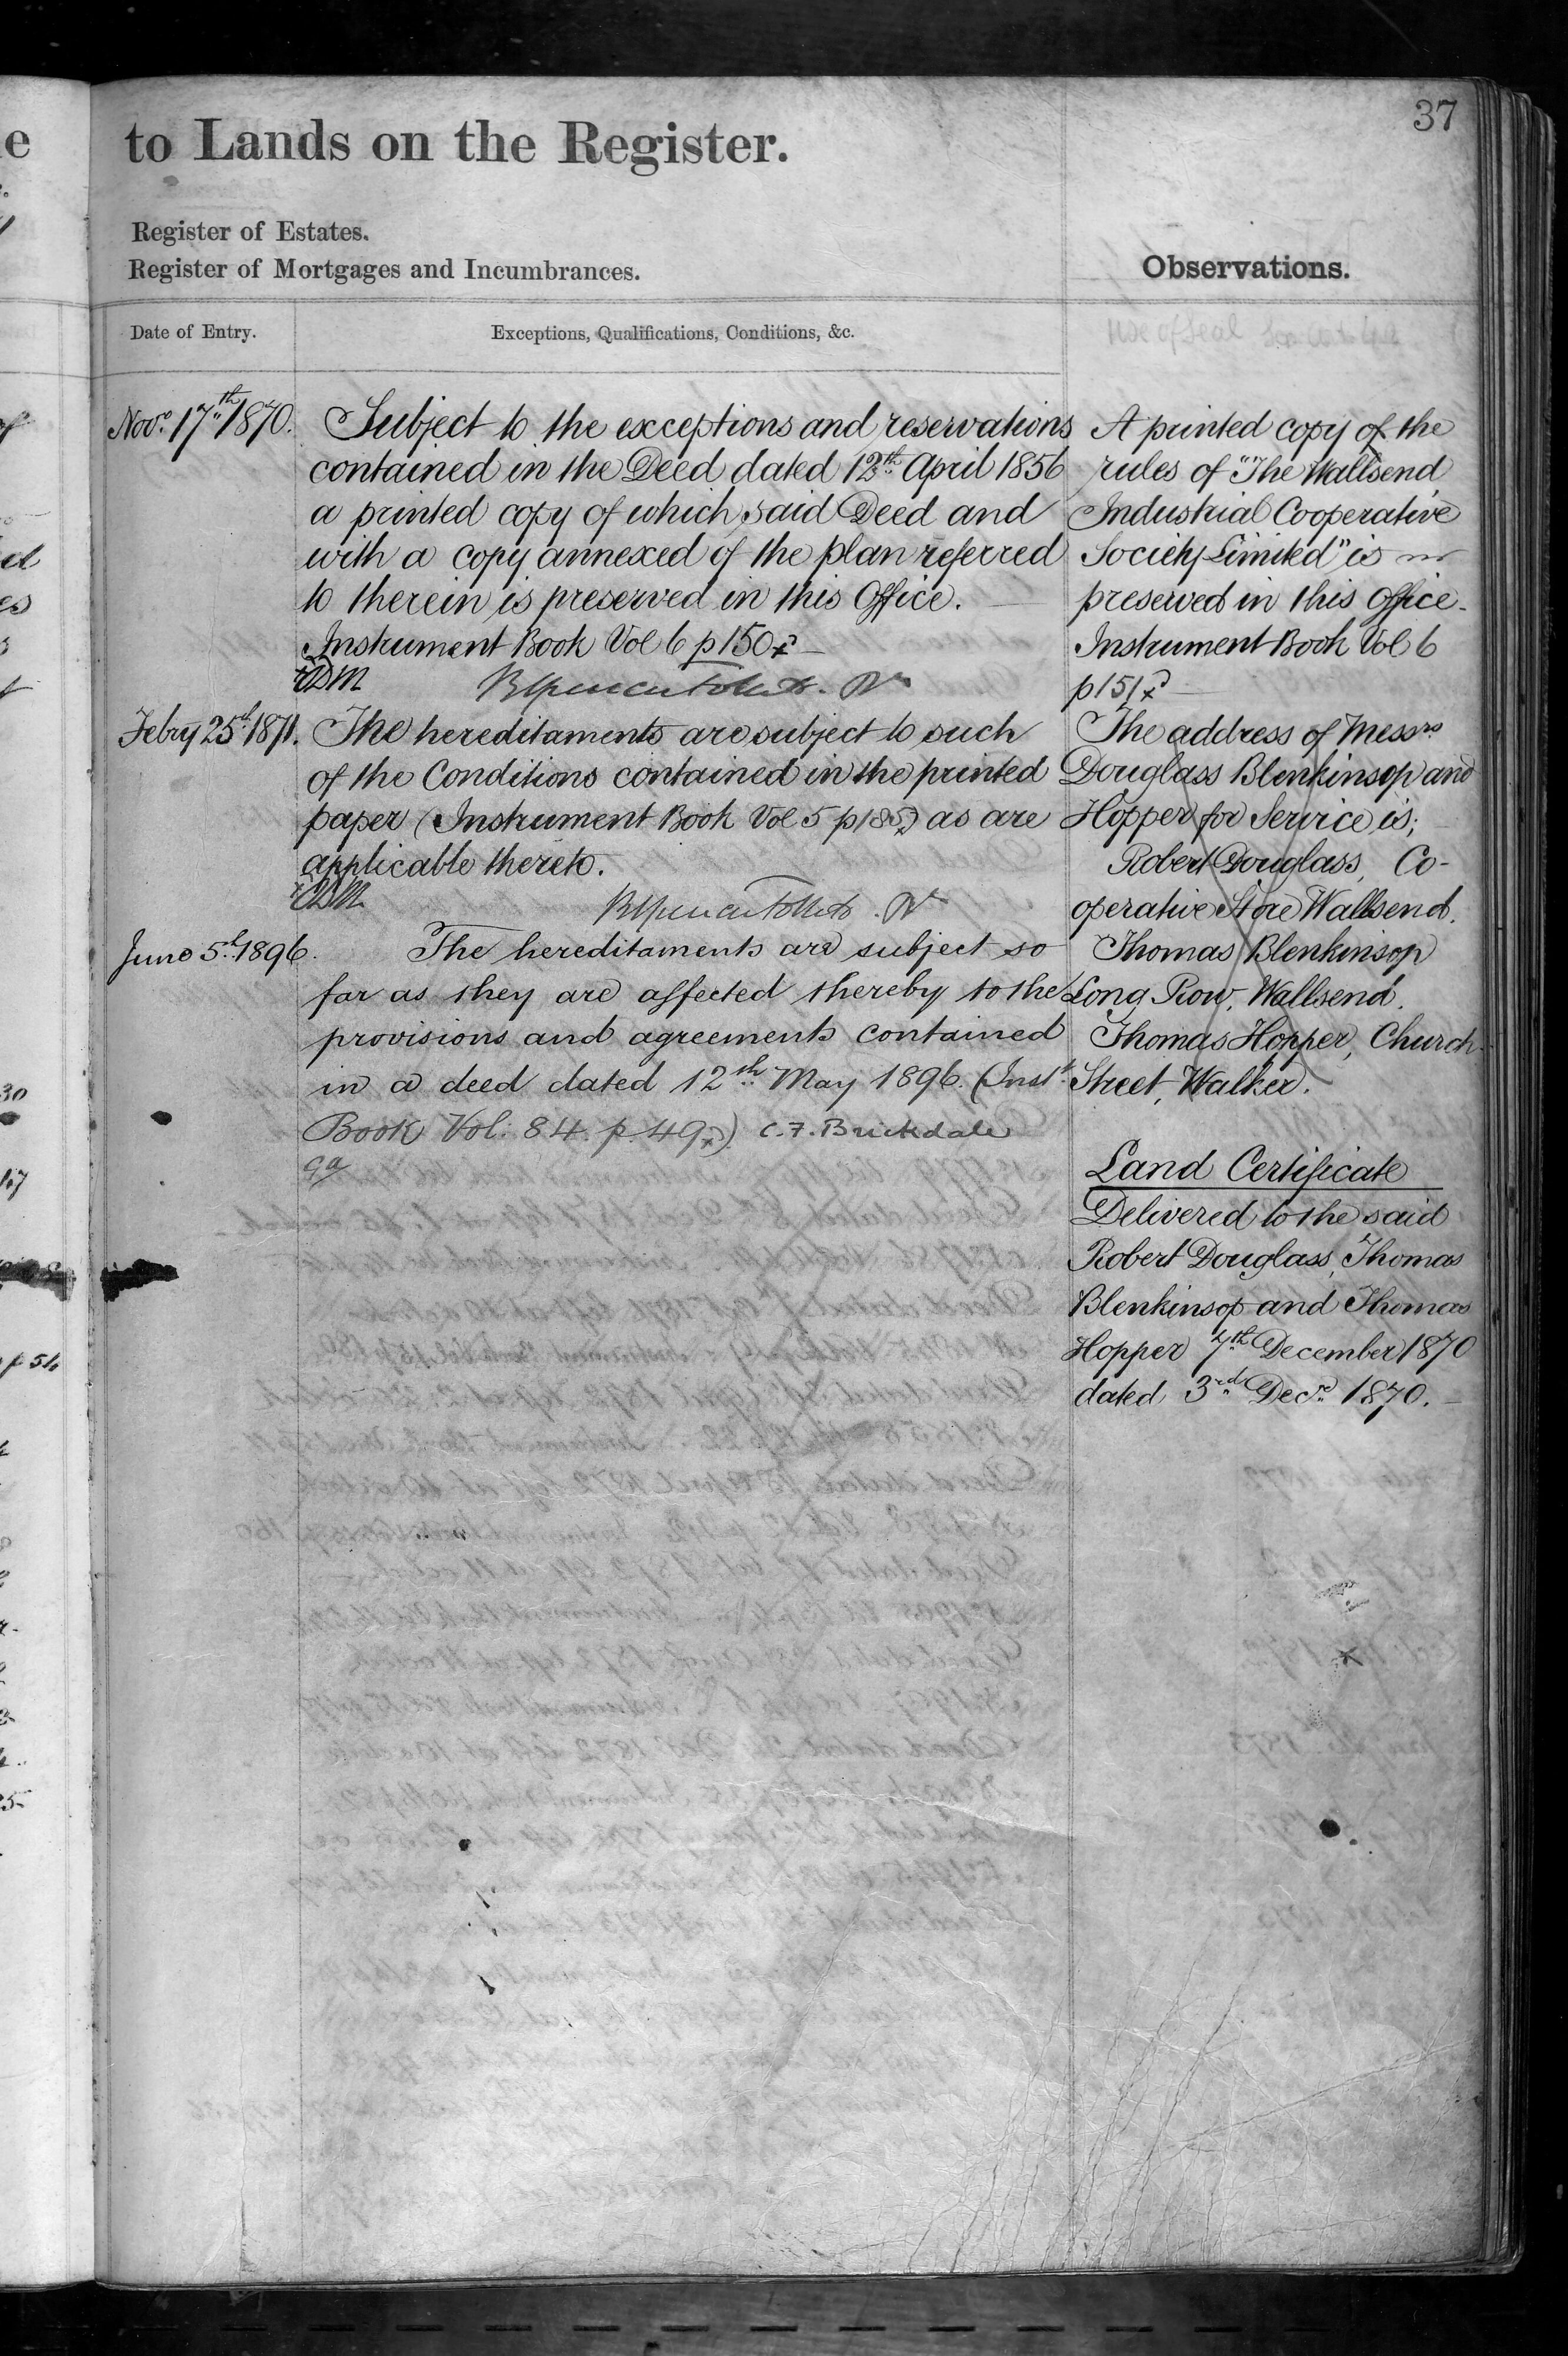 37
to Lands on the Register.
Register of Estates.
Register of Mortgages and Incumbrances.
Observations.
Date of Entry.
Exceptions, Qualifications, Conditions, &c.
Novr. 17th 1870.
Subject to the exceptions and reservations
contained in the Deed dated 12th April 1856
a printed copy of which said Deed and
with a copy annexed of the plan referred
to therein is preserved in this Office.
Instrument Book Vol 6 p 150
Feby 25th 1871.
The hereditaments are subject to such
of the Conditions contained in the printed
paper (Instrument Book Vol 5 p 185) as are
applicable thereto.
June 5th 1896.
The hereditaments are subject so
far as they are affected thereby to the
provisions and agreements contained
in a deed dated 12th May 1896. (Inst.
Book Vol: 84. p. 49) C. F. Brickdale
A printed copy of the
rules of "The Wallsend
Industrial Cooperative
Society Limited" is
preserved in this Office.
Instrument Book Vol 6
p 151
The address of Messrs
Douglass Blenkinsop and
Hopper for Service is;
Robert Douglass, Co-
operative Store Wallsend.
Thomas Blenkinsop
Long Row, Wallsend.
Thomas Hopper, Church
Street, Walker.
Land Certificate
Delivered to the said
Robert Douglass, Thomas
Blenkinsop and Thomas
Hopper 7th December 1870
dated 3rd Decr. 1870.